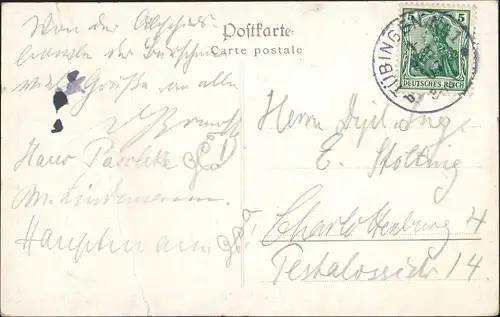 Postkarte
Carte postale
Von der Abschieds
kneipe der Burschen
viele Grüße an alle
Hans Paschke
M. Lindemann
Hauptmann
TÜBINGEN
5 5
DEUTSCHES REICH
Herrn Dipl. Ing.
E. Stolting
Charlottenburg 4
Pestalozzistr 14.